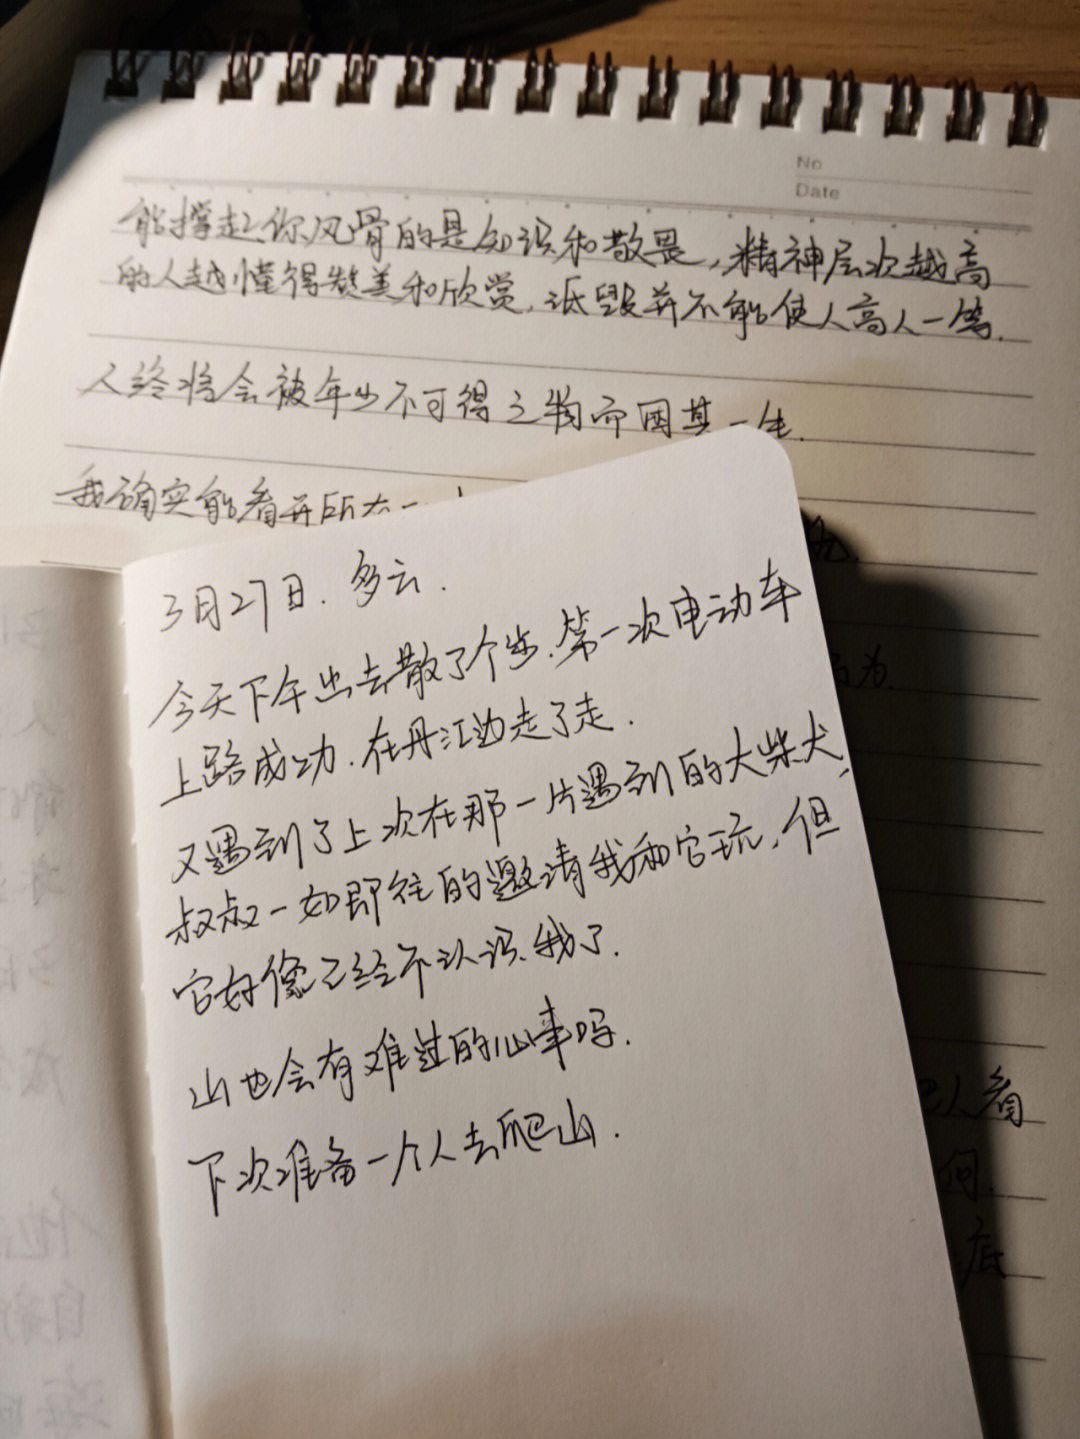 No
Date
能撑起你风骨的是知识和敬畏,精神层次越高
的人越懂得赞美和欣赏,诋毁并不能使人高人一等.
人终将会被年少不可得之物而困其一生.
我确实能看开所有一
3月27日. 多云.
今天下午出去散了个步.第一次电动车
上路成功.在丹江边走了走.
又遇到了上次在那一片遇到的大柴犬,
叔叔一如即往的邀请我和它玩,但
它好像已经不认识我了.
山也会有难过的心事吗.
下次准备一个人去爬山.
为.
人看
何.
底